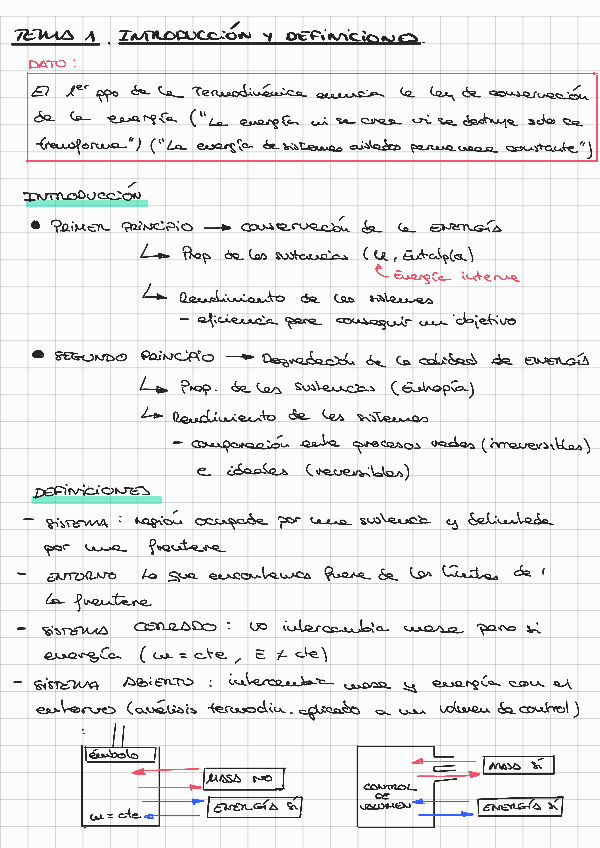 TEMA 1. INTRODUCCIÓN Y DEFINICIONES
DATO:
El 1er ppo de la Termodinámica enuncia la ley de conservación
de la energía ("La energía ni se crea ni se destruye solo se
transforma") ("La energía de sistemas aislados permanece constante")
INTRODUCCIÓN
● PRIMER PRINCIPIO → conservación de la ENERGÍA
↳ Prop de las sustancias (u, Entalpía)
Energía interna
↳ Rendimiento de los sistemas
- eficiencia para conseguir un objetivo
● SEGUNDO PRINCIPIO → Degradación de la calidad de ENERGÍA
↳ Prop. de las sustancias (Entropía)
↳ Rendimiento de los sistemas
- comparación entre procesos reales (irreversibles)
e ideales (reversibles)
DEFINICIONES
- SISTEMA: región ocupada por una sustancia y delimitada
por una frontera
- ENTORNO Lo que encontamos fuera de los límites de
la frontera
- SISTEMA CERRADO: no intercambia masa pero si
energía (m = cte, E ≠ cte)
- SISTEMA ABIERTO: intercambia masa y energía con el
entorno (análisis termodin. aplicado a un volumen de control)
émbolo
MASA NO
ENERGÍA SÍ
m = cte
CONTROL
DE
VOLUMEN
MASA SÍ
ENERGÍA SÍ